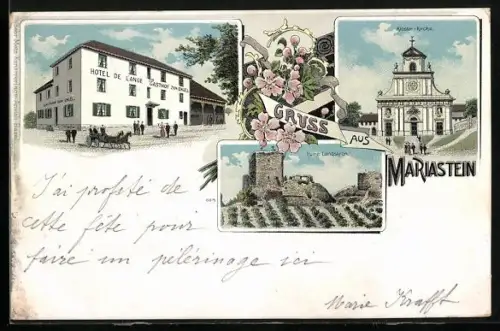 HOTEL DE L'ANGE
GASTHOF ZUM ENGEL
GRUSS
AUS
MARIASTEIN
Kloster-Kirche.
J'ai profité de
cette fête pour
faire un pélérinage ici
Marie Krafft